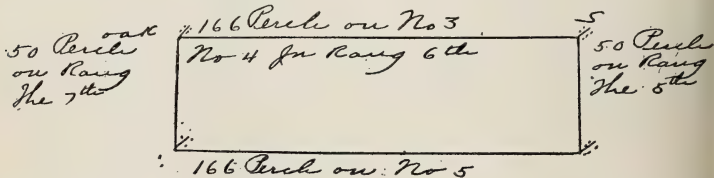 oak
166 Perch on No 3
S
50 Perch
on Rang
The 7th
No 4 In Rang 6th
50 Perch
on Rang
The 5th
166 Perch on No 5